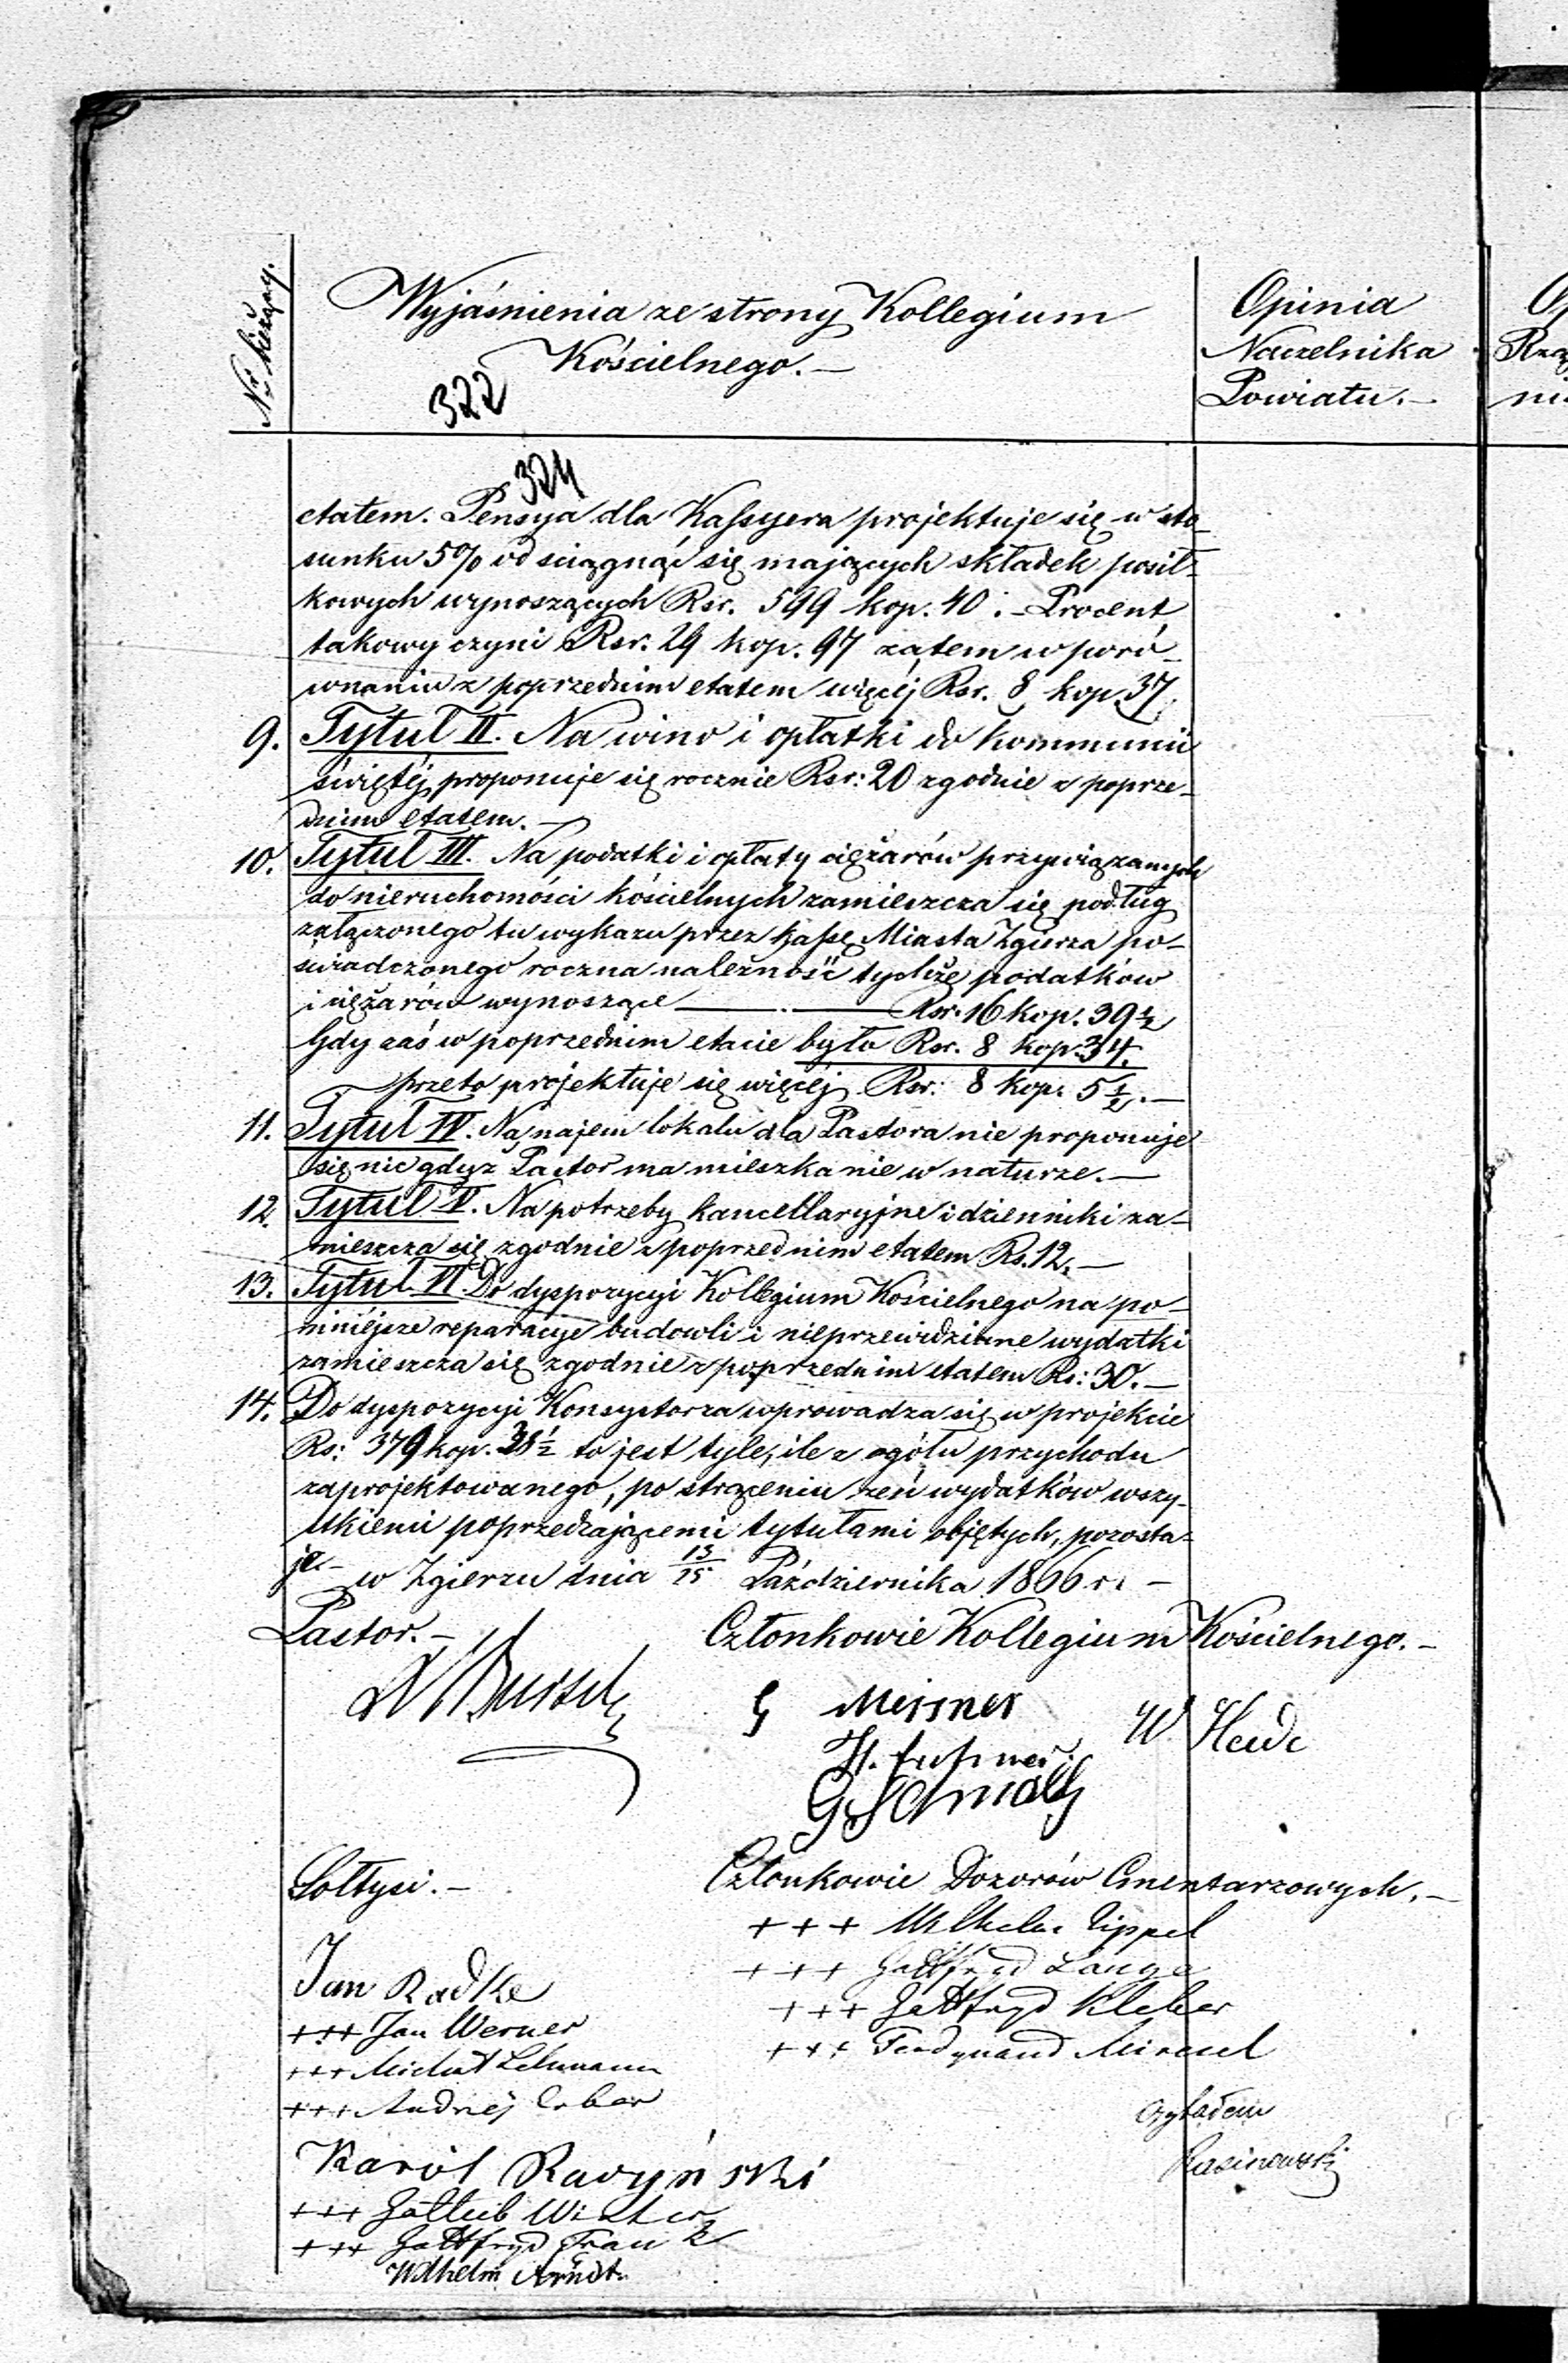 Nr bieżący.
Wyjaśnienia ze strony Kollegium
Kościelnego.—
322
Opinia
Naczelnika
Powiatu.—
324
etatem. Pensya dla Kassyera projektuje się w sto-
sunku 5% od sciągnąć się mających składek posił-
kowych wynoszących Rsr. 599 kop. 40.— Procent
takowy czyni Rsr. 29 kop. 97 zatem w poró-
wnaniu z poprzednim etatem więcéj Rsr. 8 kop. 37.
9. Tytuł II. Na wino i opłatki do kommunii
świętéj proponuje się rocznie Rsr: 20 zgodnie z poprze-
dnim etatem.—
10. Tytuł III. Na podatki i opłaty ciężarów przywiązanych
do nieruchomości kościelnych zamieszcza się podług
załączonego tu wykazu przez Kassę Miasta Zgierza po-
świadczonego roczna należność tychże podatków
i ciężarów wynoszące — Rsr. 16 kop. 39½
Gdy zaś w poprzednim etacie było Rsr. 8 kop. 34.
przeto projektuje się więcéj Rsr: 8 kop. 5½.—
11. Tytuł IV. Na najem lokalu dla Pastora nie proponuje
się nic gdyż Pastor ma mieszkanie w naturze.—
12. Tytuł V. Na potrzeby kancellaryjne i dzienniki za-
mieszcza się zgodnie z poprzednim etatem Rs. 12.—
13. Tytuł VI. Do dyspozycyi Kollegium Kościelnego na po-
mniéjsze reparacye budowli i nieprzewidziane wydatki
zamieszcza się zgodnie z poprzednim etatem Rs: 30.—
14. Do dyspozycyi Konsystorza wprowadza się w projekcie
Rs: 379 kop. 38½ to jest tyle, ile z ogółu przychodu
zaprojektowanego, po strąceniu zeń wydatków wszy-
stkiemi poprzedzającemi tytułami objętych, pozosta-
je— w Zgierzu dnia 13/25 Października 1866 r.—
Pastor.—
Członkowie Kollegium Kościelnego.—
G Meisner
W. Heide
G Schmalz
Sołtysi.—
Członkowie Dozorów Cmentarzowych.—
+++ Wilhelm Zippel
+++ Gottfryd Lange
Jan Radke
+++ Gottfryd Kleber
+++ Jan Werner
+++ Ferdynand
+++ Michał Lehmann
+++ Andrzéj
Czytałem
Karol
+++ Gottlieb Winter
+++ Gottfryd Frank
Wilhelm Arndt.